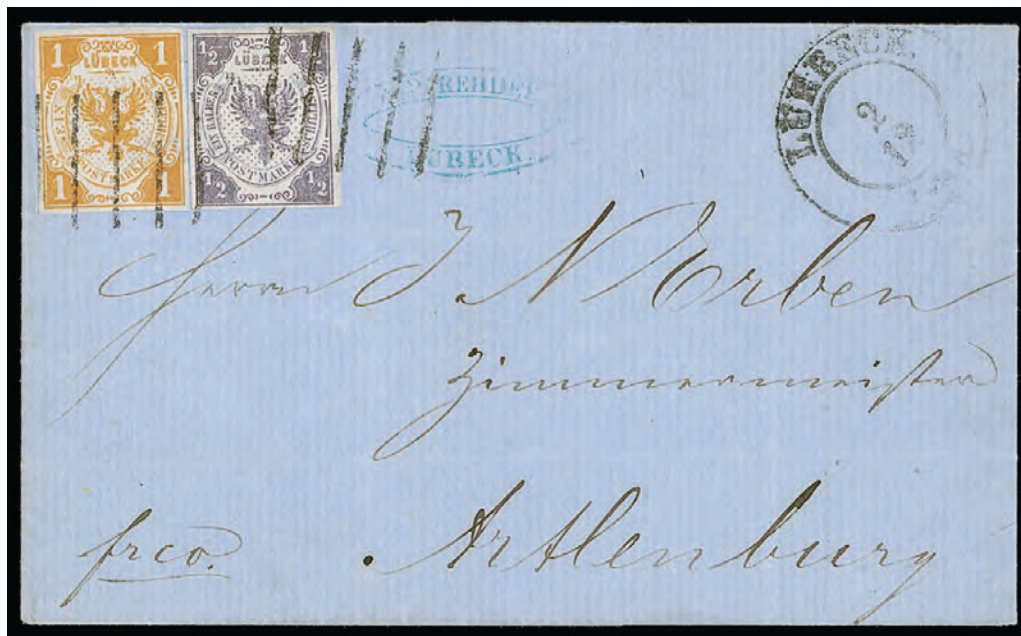 1 LÜBECK 1
EIN SCHILLING
POSTMARKE
1 1
1/2 LÜBECK 1/2
EIN HALBER SCHILLING
POSTMARKE
1/2 1/2
REHDER
LÜBECK
LUEBECK
2
12
Herrn J. N Erben
Zimmermeister
frco. Artlenburg